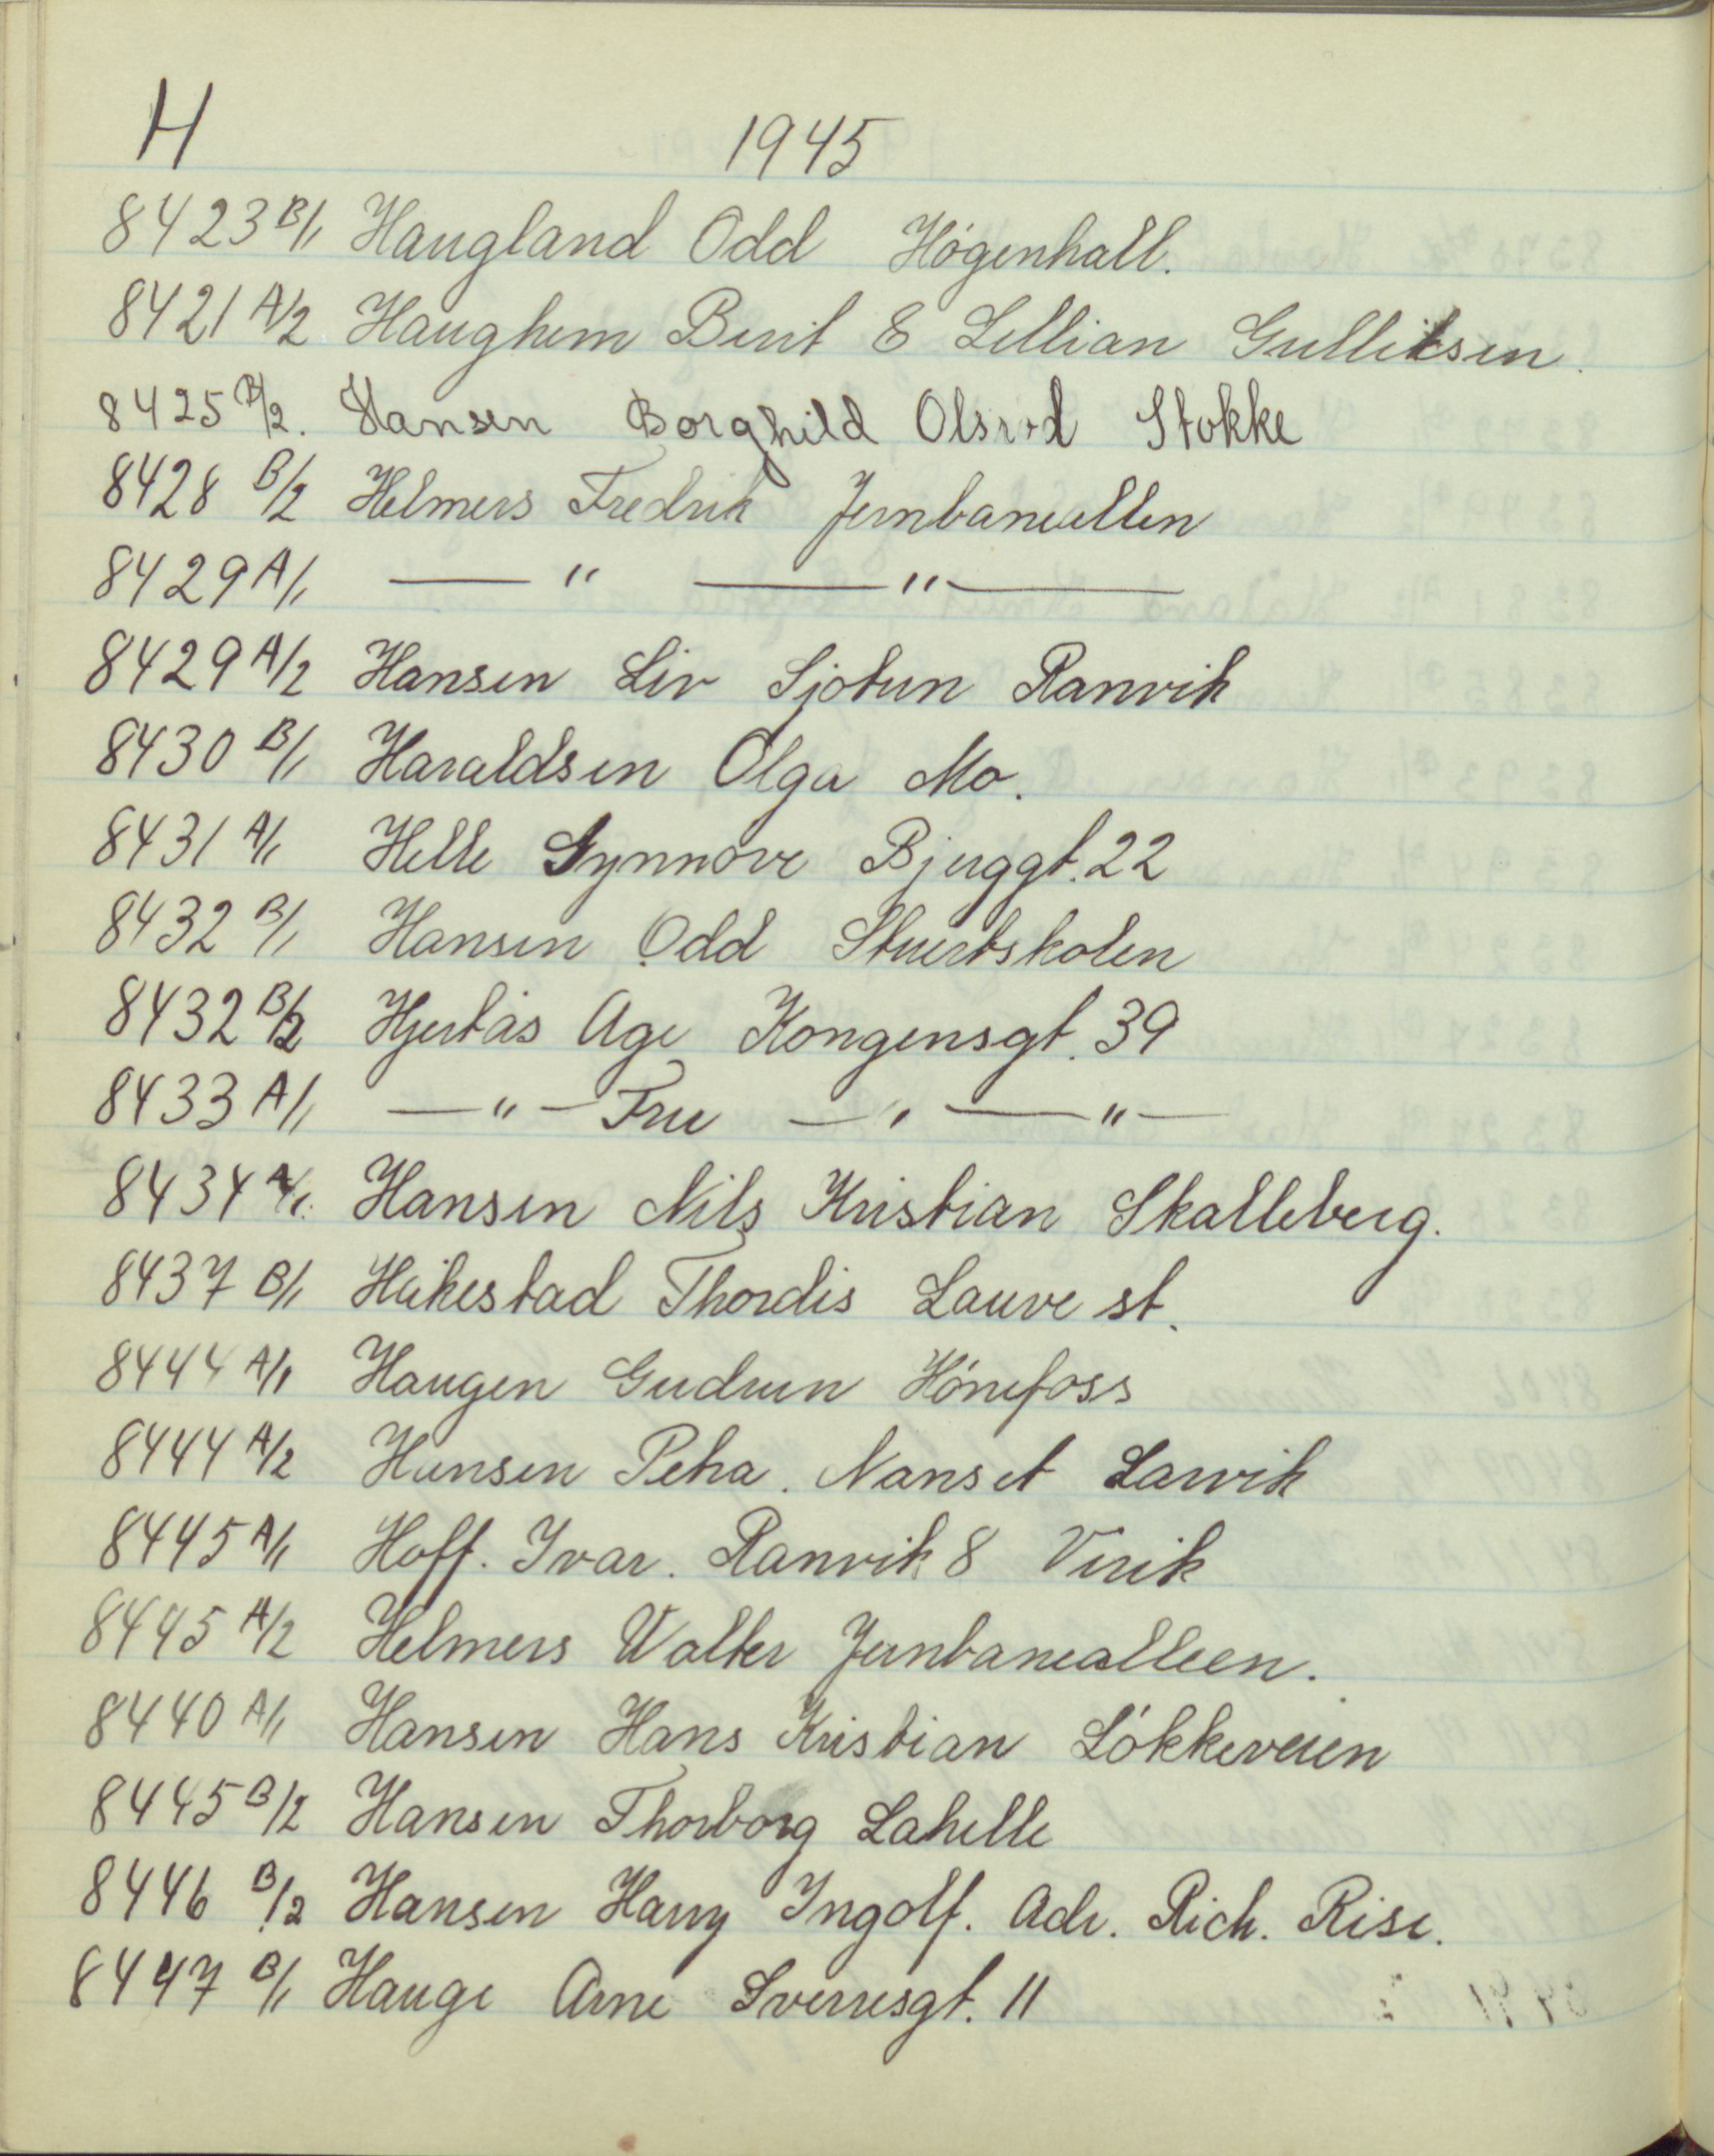 H 1945
8423 B/1 Haugland Odd Högenhall.
8421 A/2 Haughem Berit & Lillian Gulliksen.
8425 B/2. Hansen Borghild Olsrød Stokke
8428 B/2 Helmers Fredrik Jernbanealleen
8429 A/1 — " — " —
8429 A/2 Hansen Liv Sjotun Ranvik
8430 B/1 Haraldsen Olga Mo.
8431 A/1 Helle Synnøve Bjuggt. 22
8432 B/1 Hansen Odd Stuertskolen
8432 B/2 Hjertås Åge Kongensgt. 39
8433 A/1 — " — Fru — " — " —
8434 A/1. Hansen Nils Kristian Skalleberg.
8437 B/1 Håkestad Thordis Lauve st.
8444 A/1 Haugen Gudrun Hönefoss
8444 A/2 Hansen Petra. Nanset Larvik
8445 A/1 Hoff. Ivar. Ranvik 8 Virik
8445 A/2 Helmers Walter Jernbanealleen.
8440 A/1 Hansen Hans Kristian Lökkeveien
8445 B/2 Hansen Thorborg Lahelle
8446 B/2 Hansen Harry Ingolf. Adr. Rich. Rise.
8447 B/1 Hauge Arne Sverresgt. 11